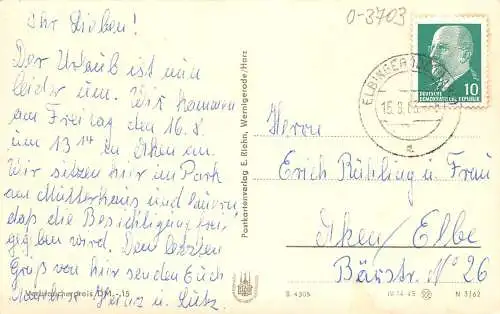 Ihr Lieben!
Der Urlaub ist nun
leider um. Wir kommen
am Freitag den 16.8.
um 13¹⁴ in Aken an.
Wir sitzen hier im Park
am Mütterhaus und lauern,
daß die Besichtigung frei-
gegeben wird. Den letzten
Gruß von hier senden Euch
Heinz u. Lutz.
Verbraucherpreis DM -.15
Postkartenverlag E. Riehn, Wernigerode/Harz
0-3703
ELBINGERODE
15.8.63
DEUTSCHE
DEMOKRATISCHE REPUBLIK
10
Herrn
Erich Rühling u. Frau
Aken/Elbe
Bärstr. No 26
S 4305
IV-14-45
N 3/62